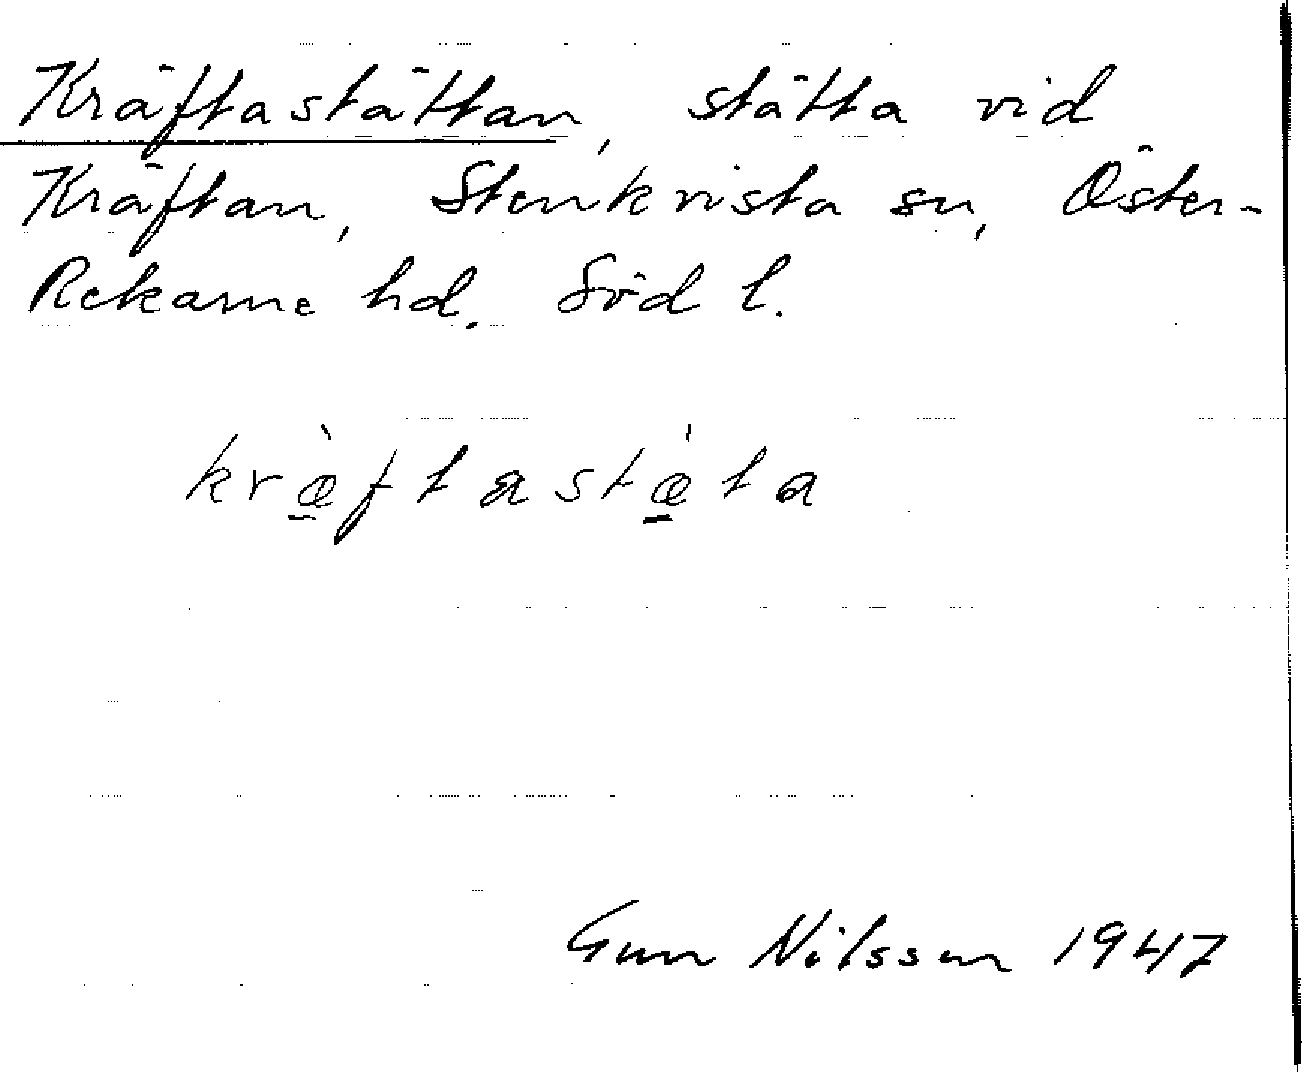 Kräftastättan, stätta vid
Kräftan, Stenkvista sn, Öster-
Rekarne hd. Söd l.
kræ̀ftastæ̍ta
Gun Nilsson 1947